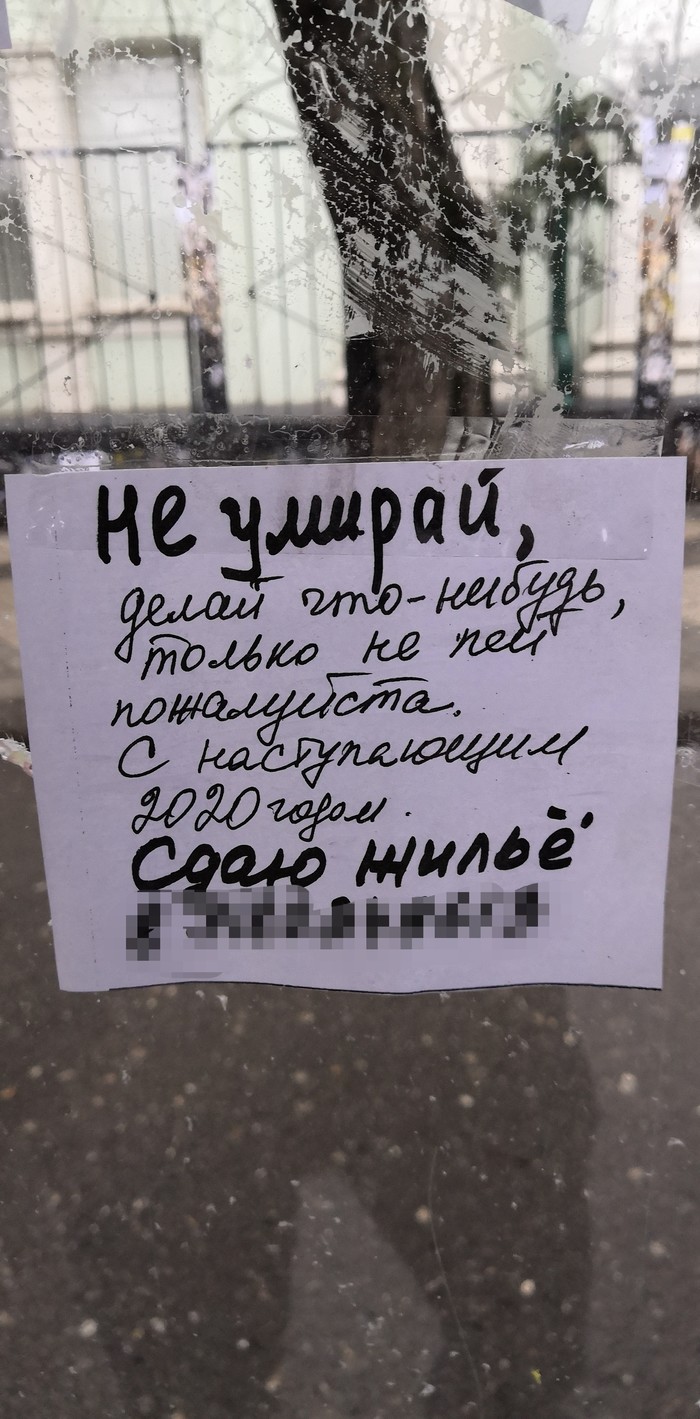 Не умирай,
делай что-нибудь,
только не пей
пожалуйста.
С наступающим
2020 годом.
Сдаю жильё